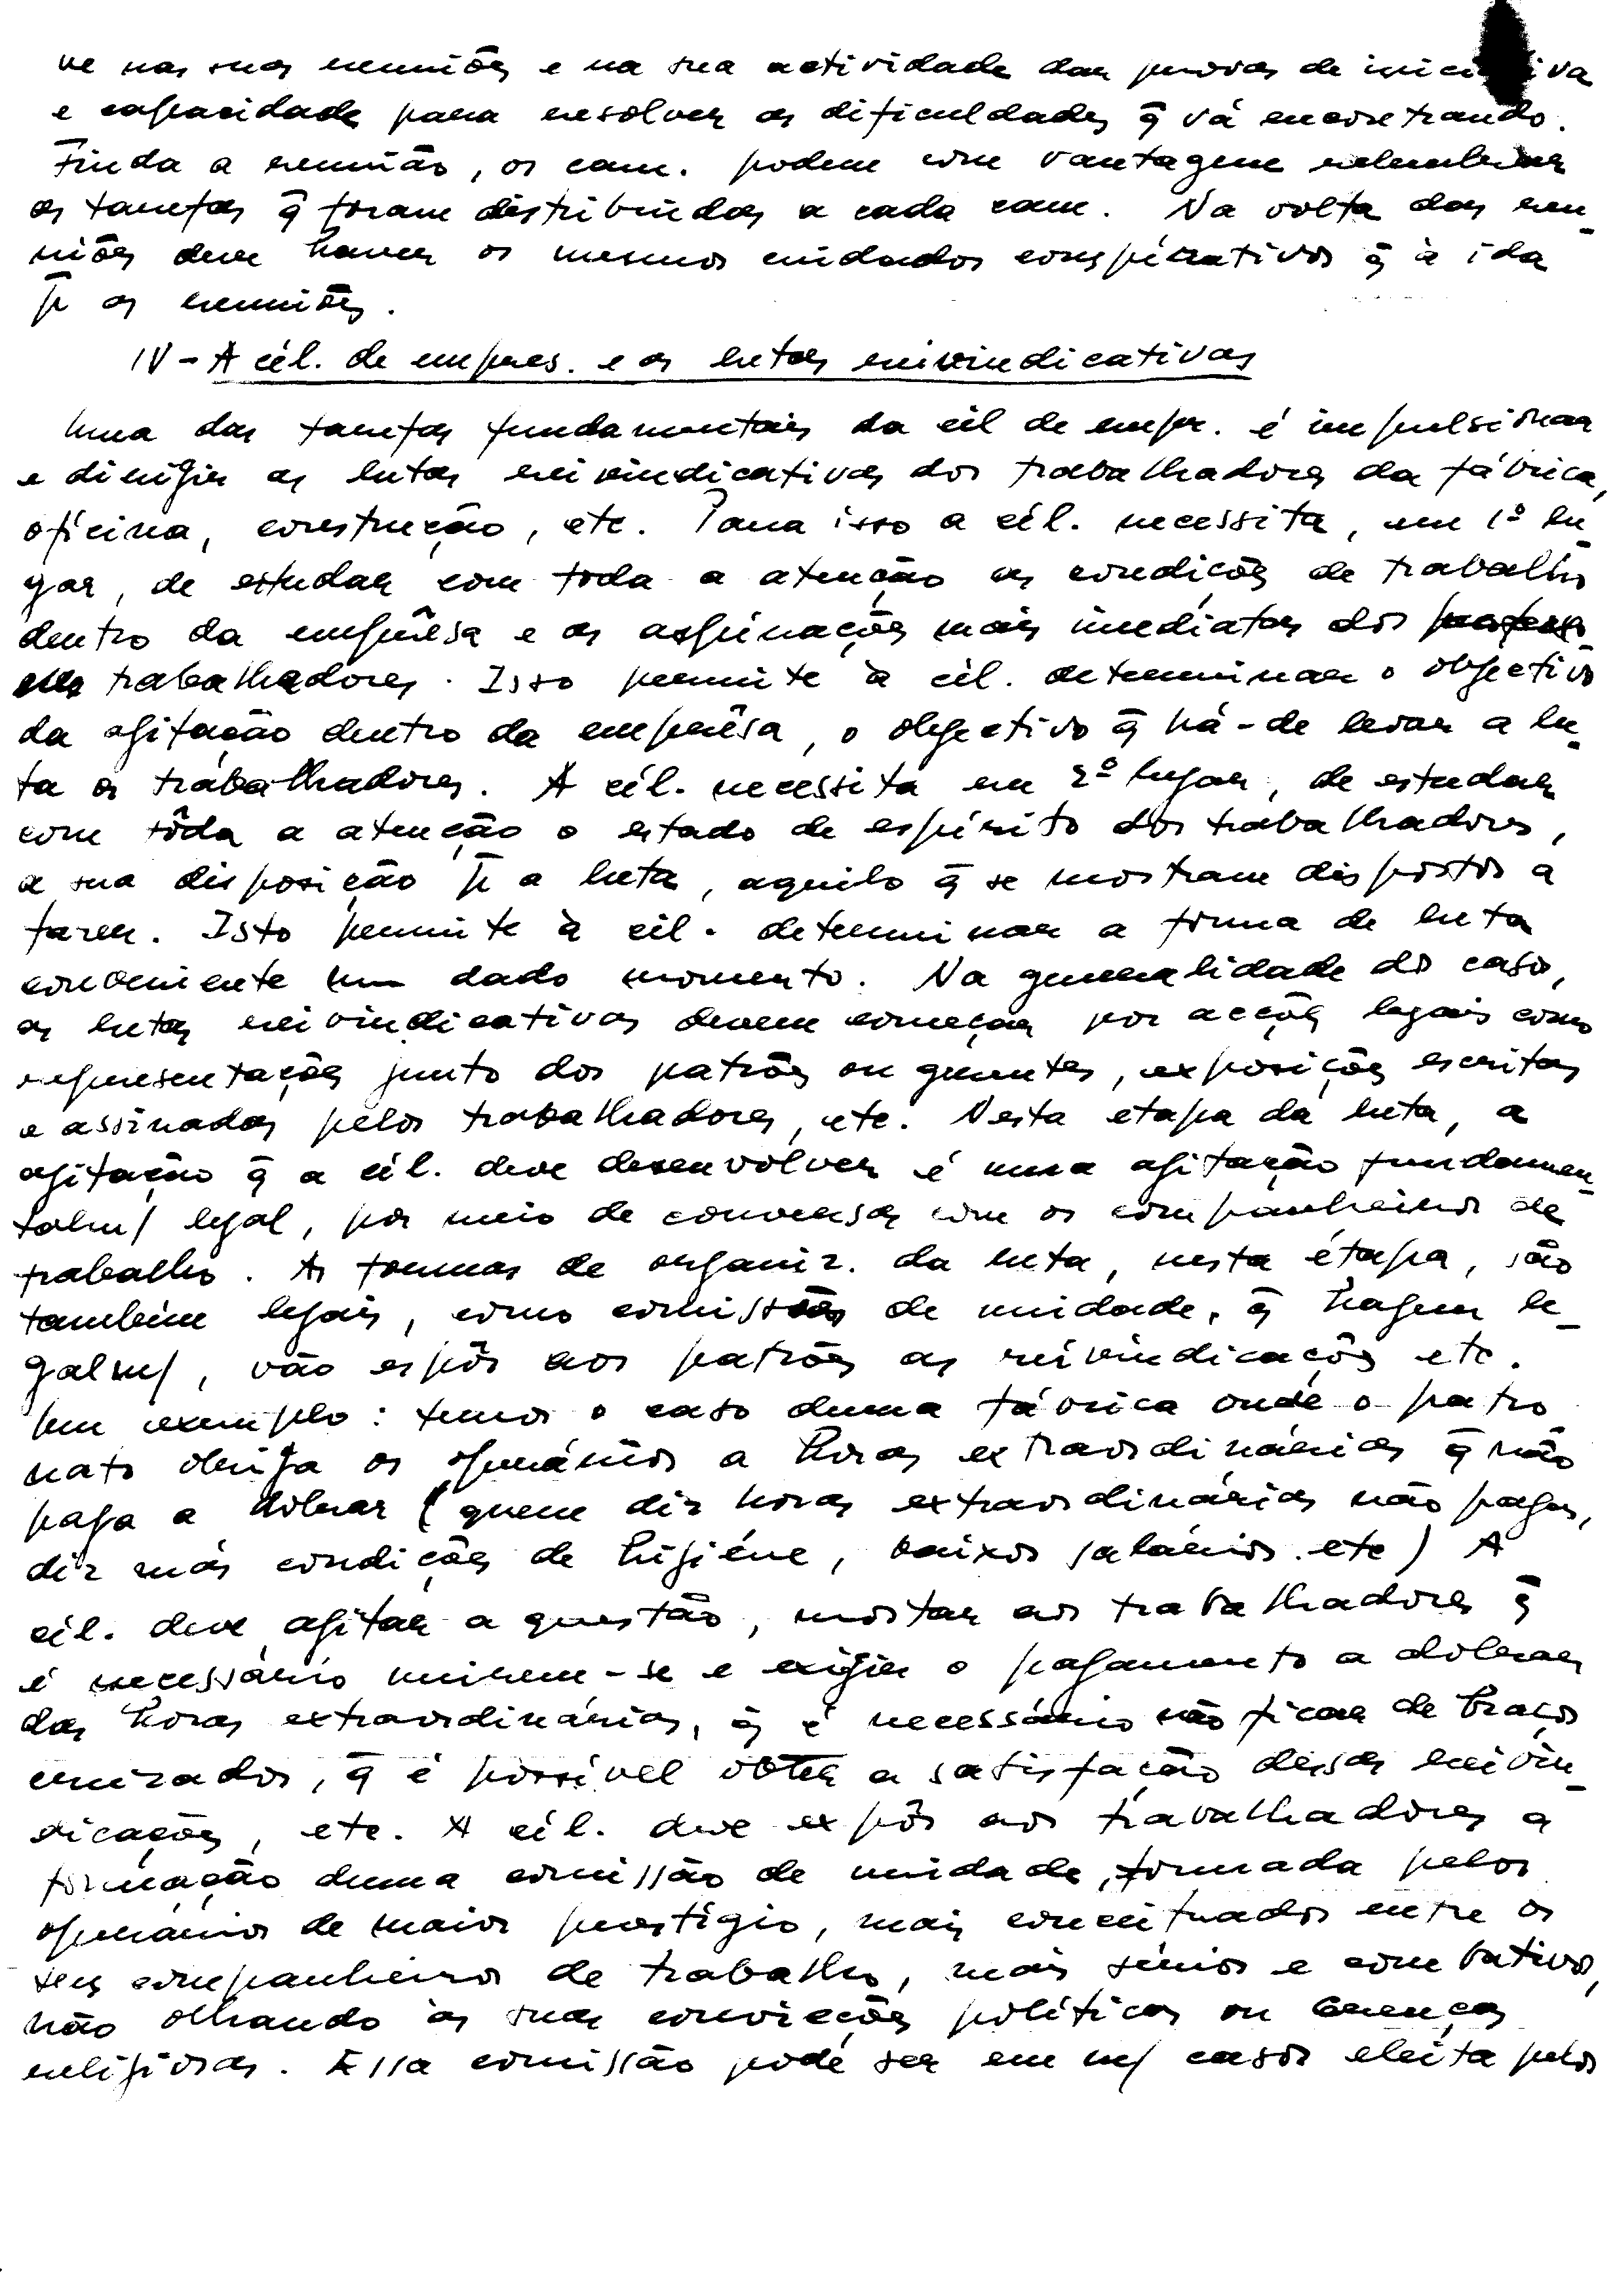 ve nas suas reuniões e na sua actividade dar provas de iniciativa
e capacidade para resolver as dificuldades q̄ vá encontrando.
Finda a reunião, os cam. podem com vantagem relembrar
as tarefas q̄ foram distribuidas a cada cam. Na volta das reu-
niões deve haver os mesmos cuidados conspirativos q̄ à ida
p̄ as reuniões.
IV - A cél. de empres. e as lutas reivindicativas
Uma das tarefas fundamentais da cél de empr. é impulsionar
e dirigir as lutas reivindicativas dos trabalhadores da fábrica,
oficina, construção, etc. Para isso a cél. necessita, em 1º lu-
gar, de estudar com toda a atenção as condições de trabalho
dentro da emprêsa e as aspirações mais imediatas dos
trabalhadores. Isso permite à cél. determinar o objectivo
da agitação dentro da emprêsa, o objectivo q̄ há-de levar a lu-
ta os trabalhadores. A cél. necessita em 2º lugar, de estudar
com tôda a atenção o estado de espírito dos trabalhadores,
a sua disposição p̄ a luta, aquilo q̄ se mostram dispostos a
fazer. Isto permite à cél. determinar a forma de luta
conveniente num dado momento. Na generalidade do caso,
as lutas reivindicativas devem começar por acções legais como
representações junto dos patrões ou gerentes, exposições escritas
e assinadas pelos trabalhadores, etc. Nesta etapa da luta, a
agitação q̄ a cél. deve desenvolver é uma agitação fundamen-
talm/ legal, por meio de conversas com os companheiros de
trabalho. As formas de organiz. da luta, nesta étapa, são
também legais, como comissões de unidade, q̄ hagem le-
galm/, vão espôr aos patrões as reivindicações etc.
Um exemplo: temos o caso duma fábrica onde o patro
nato obriga os operários a horas extraordinárias q̄ não
paga a dobrar (quem diz horas extraordinárias não pagas,
diz más condições de higiéne, baixos salários. etc) A
cél. deve agitar a questão, mostar aos trabalhadores q̄
é necessário unirem-se e exigir o pagamento a dobrar
das horas extraordinárias, q̄ é necessário não ficar de braços
cruzados, q̄ é possível obter a satisfação dessas reivin-
dicações, etc. A cél. deve expôr aos trabalhadores a
formação duma comissão de unidade, formada pelos
operários de maior prestígio, mais conceituados entre os
seus companheiros de trabalho, mais sérios e combativos,
não olhando às suas convicções políticas ou crenças
religiosas. Essa comissão pode ser em m/ casos eleita pelos